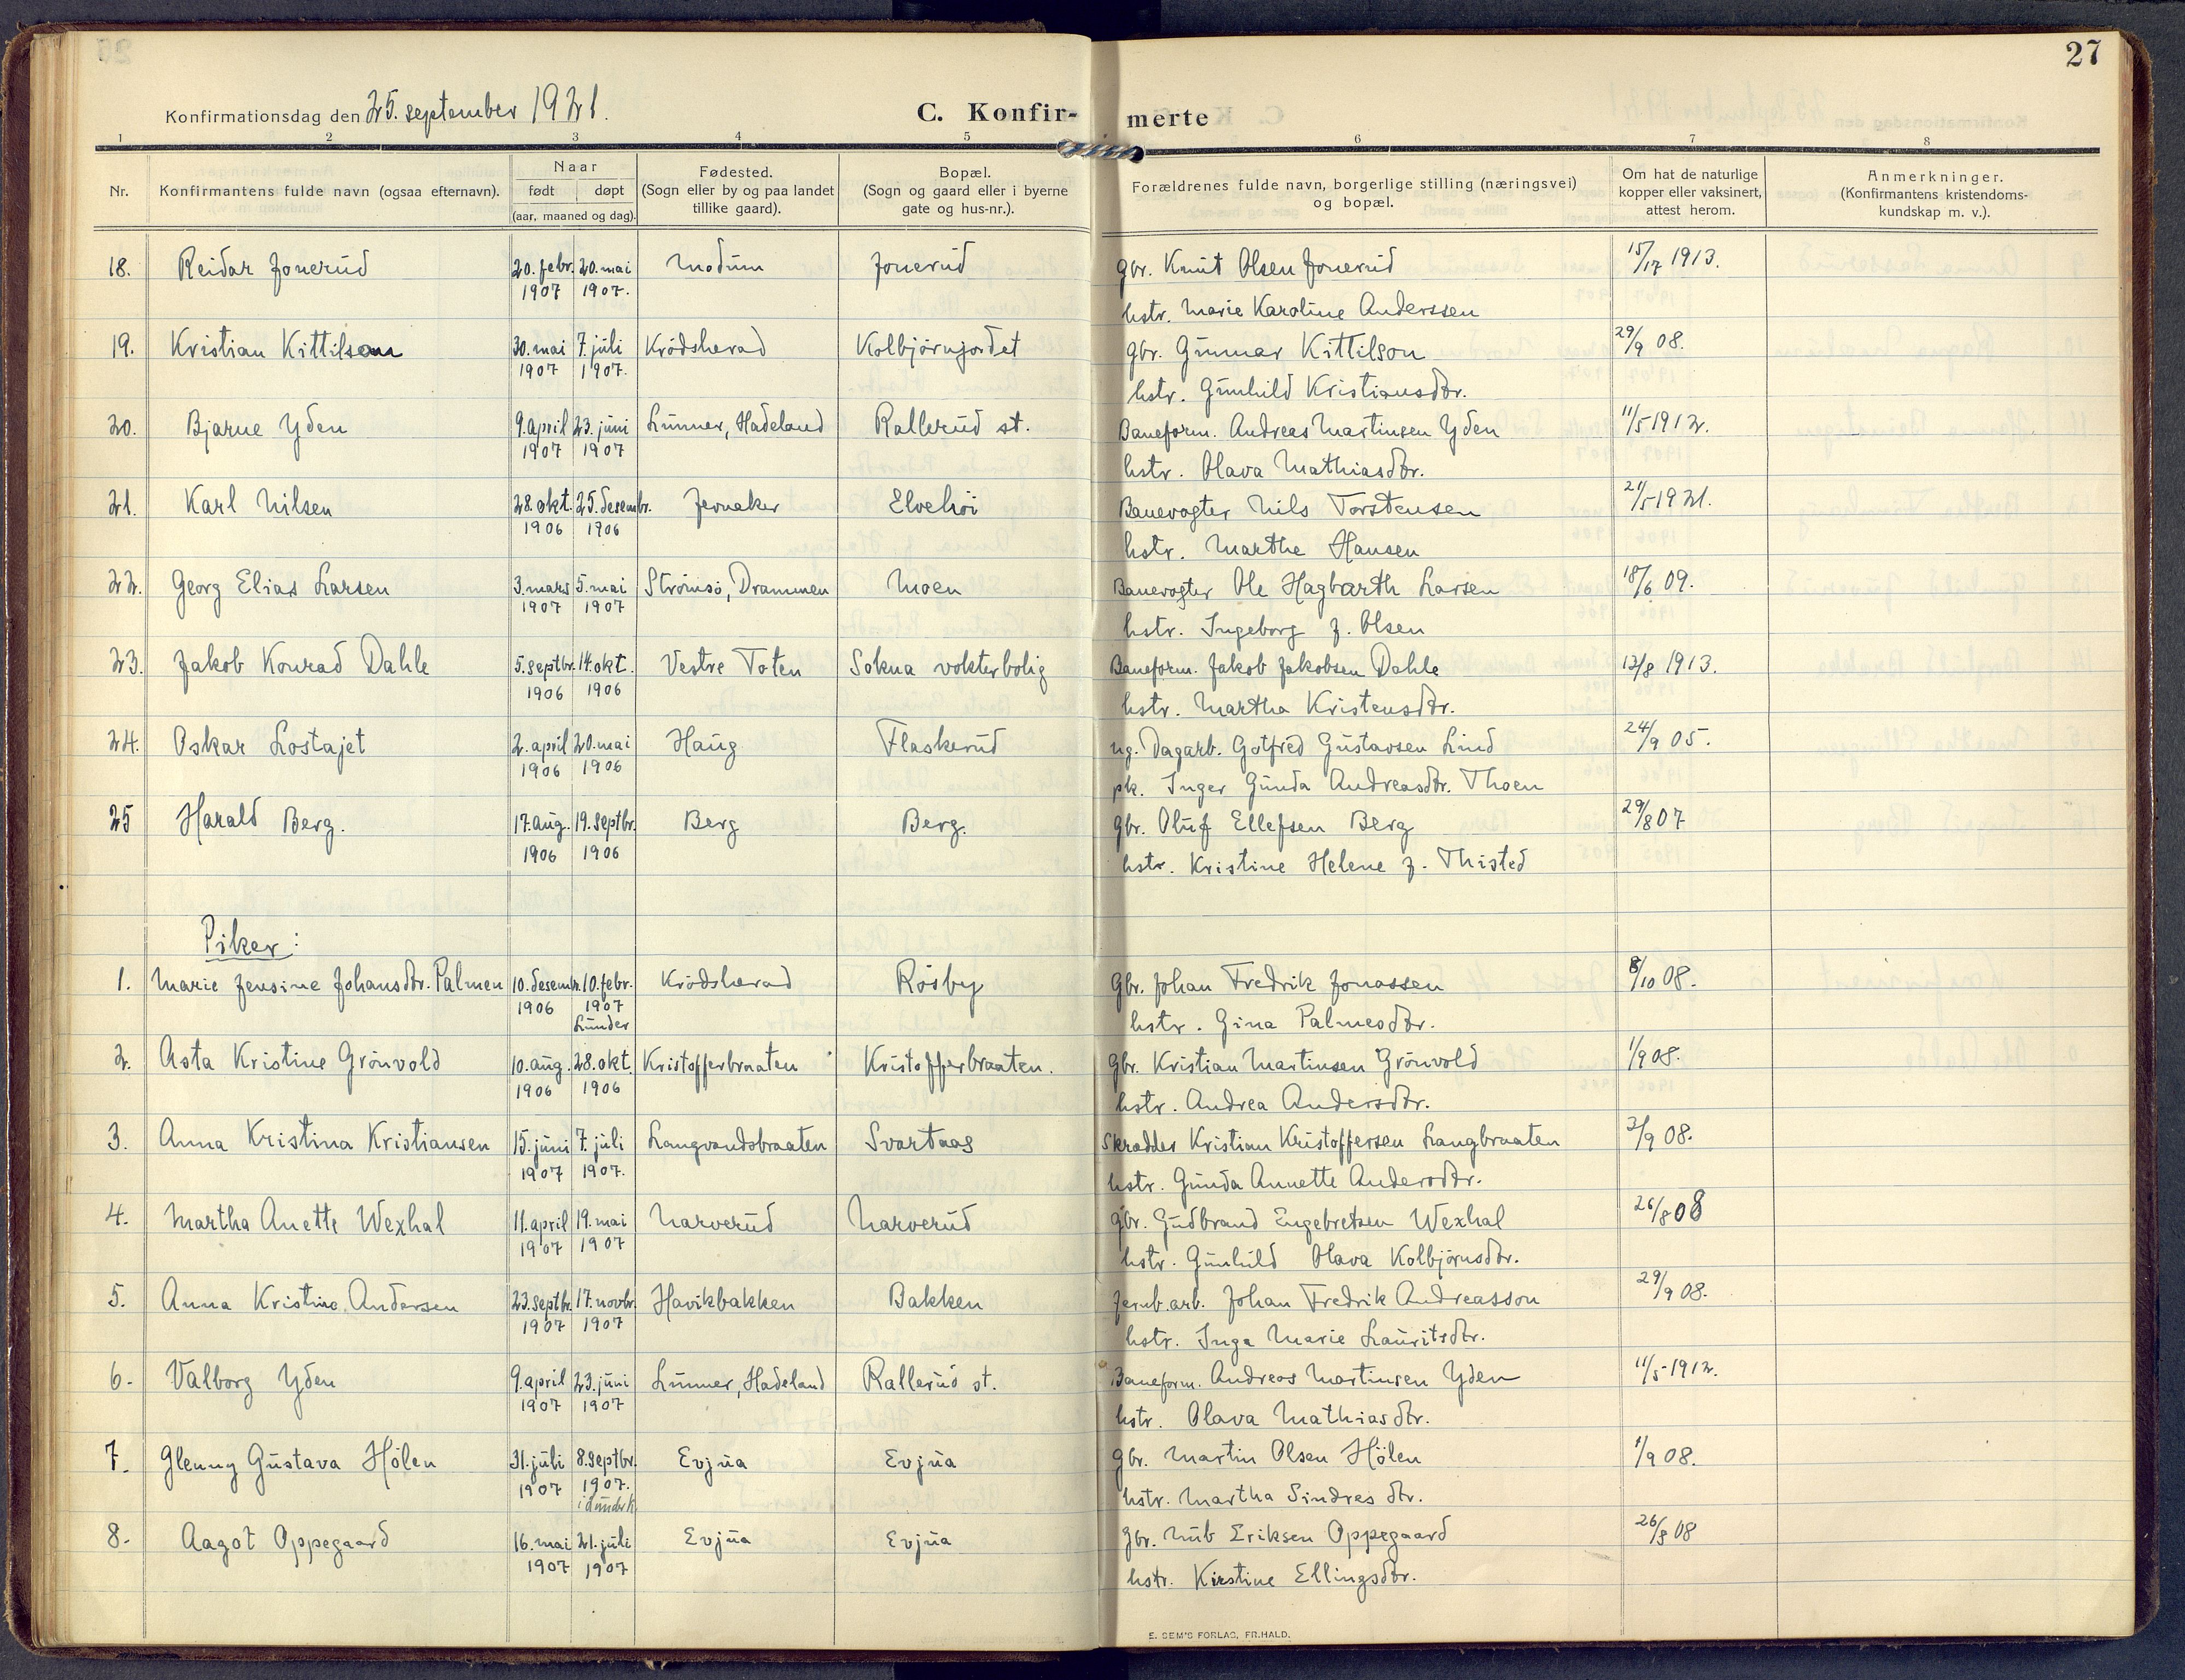 27
Konfirmationsdag den 25. september 1921.
C. Konfir-merte
1 2 3 4 5 6 7 8
Nr.
Konfirmantens fulde navn (ogsaa efternavn).
Naar
født døpt
(aar, maaned og dag).
Fødested.
(Sogn eller by og paa landet
tillike gaard).
Bopæl.
(Sogn og gaard eller i byerne
gate og hus-nr.).
Forældrenes fulde navn, borgerlige stilling (næringsvei)
og bopæl.
Om hat de naturlige
kopper eller vaksinert,
attest herom.
Anmerkninger.
(Konfirmantens kristendoms-
kundskap m. v.).
18. Reidar Jonerud 20. febr. 20. mai Modum Jonerud gbr. Knut Olsen Jonerud 15/17 1913.
1907 1907. hstr. Marie Karoline Anderssen
19. Kristian Kittilsen 30. mai 7. juli Krødsherad Kolbjörnjordet gbr. Gunnar Kittilson 29/9 08.
1907 1907. hstr. Gunhild Kristiansdtr.
20. Bjarne Yden 9. april 23. juni Lunner, Hadeland Rallerud st. Baneform. Andreas Martinsen Yden 11/5 1912.
1907 1907 hstr. Olava Mathiasdtr.
21. Karl Nilsen 28. okt. 25. desembr. Jevnaker Elvehöi Banevogter Nils Torstensen 21/5 1921.
1906 1906 hstr. Marthe Hansen
22. Georg Elias Larsen 3. mars 5. mai Strømsö, Drammen Moen Banevogter Ole Hagbarth Larsen 18/6 09.
1907 1907 hstr. Ingeborg f. Olsen
23. Jakob Konrad Dahle 5. septbr. 14. okt. Vestre Toten Sokna vokterbolig Baneform. Jakob Jakobsen Dahle 12/8 1913.
1906 1906 hstr. Martha Kristensdtr.
24. Oskar Lostajet 2. april 20. mai Haug Flaskerud ug. Dagarb. Gotfred Gustavsen Lind 24/9 05.
1906 1906 pk. Inger Gunda Andreasdtr. Thoen
25 Harald Berg. 17. aug. 19. septbr. Berg Berg. gbr. Oluf Ellefsen Berg 29/8 07
1906 1906 hstr. Kristine Helene f. Thisted
Piker:
1. Marie Jensine Johansdtr. Palmen 10. desembr. 10. febr. Krødsherad Rösby Gbr. Johan Fredrik Jonassen 8/10 08.
1906 1907 hstr. Gina Palmesdtr.
Lunder
2. Asta Kristine Grönvold 10. aug. 28. okt. Kristofferbraaten Kristofferbraaten. Gbr. Kristian Martinsen Grönvold 1/9 08.
1906 1906 hstr. Andrea Andersdtr.
3. Anna Kristina Kristiansen 15. juni 7. juli Langvandsbraaten Svartaas Skrædder Kristian Kristoffersen Langbraaten 2/9 08.
1907 1907. hstr. Gunda Annette Andersdtr.
4. Martha Anette Wexhal 11. april 19. mai Narverud Narverud gbr. Gudbrand Engebretsen Wexhal 26/8 08
1907 1907 hstr. Gunhild Olava Kolbjørnsdtr.
5. Anna Kristine Andersen 23. septbr. 17. novbr. Havikbakken Bakken Jernb.arb. Johan Fredrik Andreasson 29/9 08.
1907 1907 hstr. Inga Marie Lauritsdtr.
6. Valborg Yden 9. april 23. juni Lunner, Hadeland Rallerud st. Baneform. Andreas Martinsen Yden 11/5 1912.
1907 1907 hstr. Olava Mathiasdtr.
7. Glenny Gustava Hölen 31. juli 8. septbr. Evjua Evjua gbr. Martin Olsen Hölen 1/9 08.
1907 1907. hstr. Martha Sindresdtr.
8. Aagot Oppegaard 16. mai 21. juli Evjua Evjua Gbr. Nub Eriksen Oppegaard 26/8 08
1907 1907 hstr. Kirstine Ellingsdtr.
E. SEM'S FORLAG, FR.HALD.